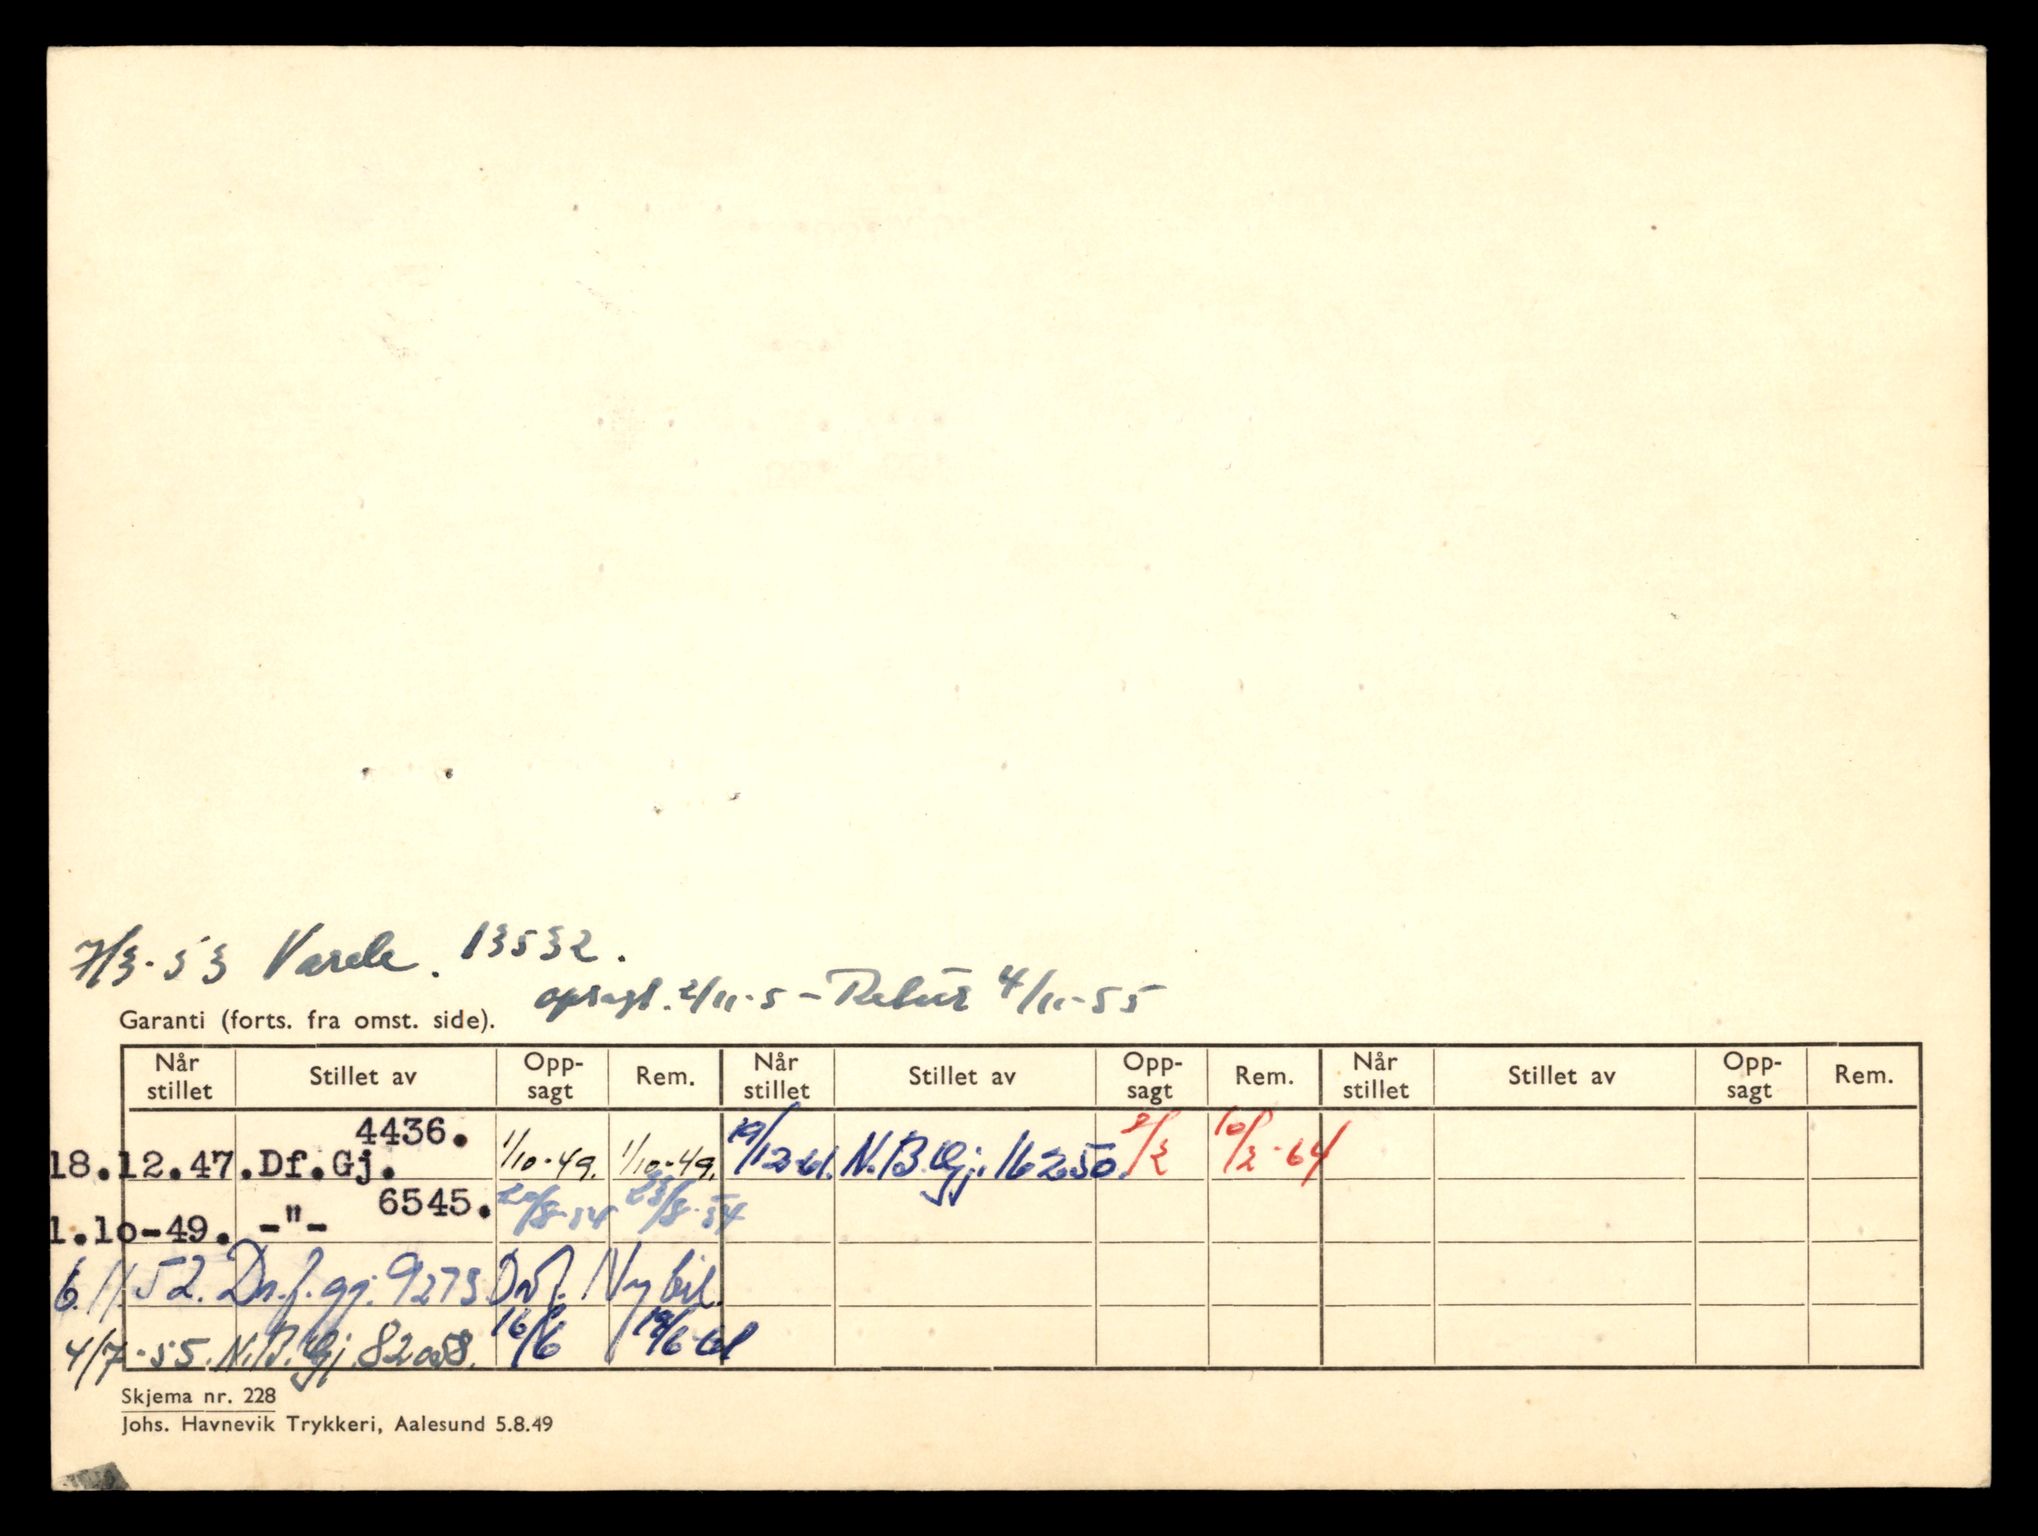 7/3-53 Varele. 13532.
opsagt. 2/11-5 - Retur 4/11-55
Garanti (forts. fra omst. side).
Når stillet Stillet av Opp-sagt Rem. Når stillet Stillet av Opp-sagt Rem. Når stillet Stillet av Opp-sagt Rem.
18.12.47. Df.Gj. 4436. 1/10-49. 1/10-49. 19/12-61. N.B.Gj. 16250. 2/2 10/2-64
1.10-49. -"- 6545. 20/8-54 23/8-54
6.11.52. Dn.f.gj. 9273. Ny bil.
4/7-55. N.B.Gj. 82058. 16/6 19/6-61
Skjema nr. 228
Johs. Havnevik Trykkeri, Aalesund 5.8.49